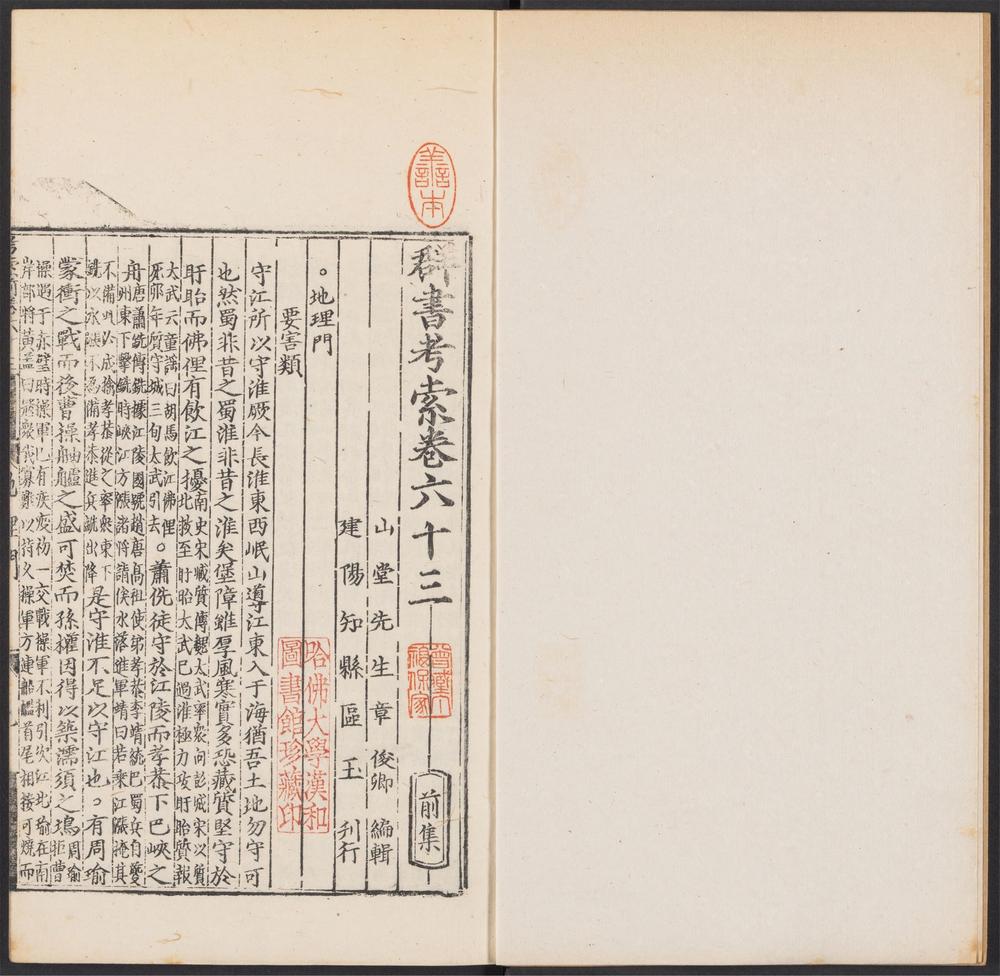 善本
群書考索卷六十三
前集
山堂先生章俊卿編輯
建陽知縣區玉刊行
哈佛大學漢和圖書館珍藏印
。地理門
要害類
守江所以守淮厥今長淮東西岷山導江東入于海猶吾土地勿守可
也然蜀非昔之蜀淮非昔之淮矣堡障雖厚風寒實多恐藏質堅守於
盱眙而佛狸有飲江之擾南史宋臧質傳魏太武率衆向彭城宋以質北救至盱眙大武已過淮極力攻盱眙質報
大武云童謡曰胡馬飲江佛狸死卯年質守城三旬太武引去。蕭侁徒守於江陵而孝恭下巴峽之
舟唐蕭銑傳銑據江陵國號趙唐髙祖使弟孝恭李靖統巴蜀兵自夔州東下擊銑時峽江方漲諸將請俟水落進軍靖曰若乘江漲掩其
不備以成擒孝恭從之率衆東下銑以水漲不爲備孝恭進兵銑出降是守淮不足以守江也。有周瑜
蒙衝之戰而後曹操舳艫之盛可焚而孫權因得以築濡須之塢周瑜拒曹
操遇于赤壁時操軍已有疾疫初一交戰操軍不利引次江北瑜在南
岸部將黃蓋曰冦衆我寡難以持久操軍方連船艦首尾相接可燒而